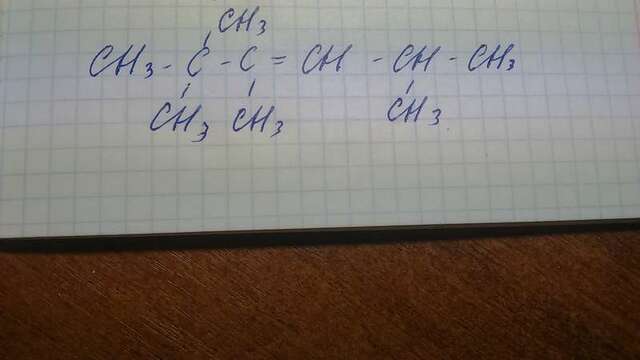 CH3
CH3 - C - C = CH - CH - CH3
CH3 CH3 CH3